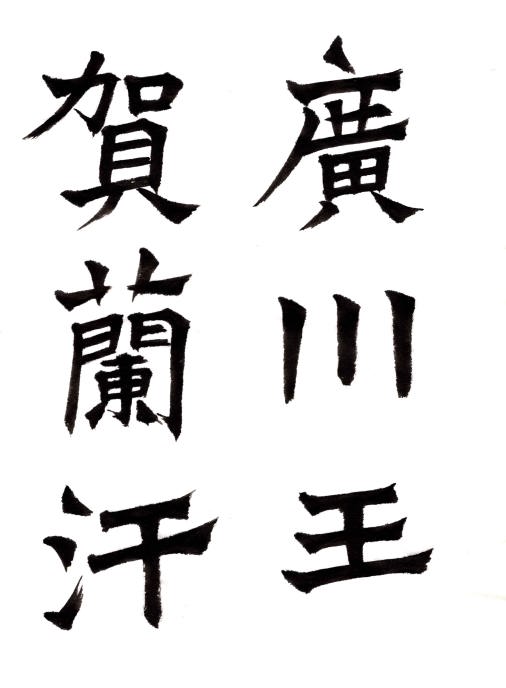 廣川王
賀蘭汗